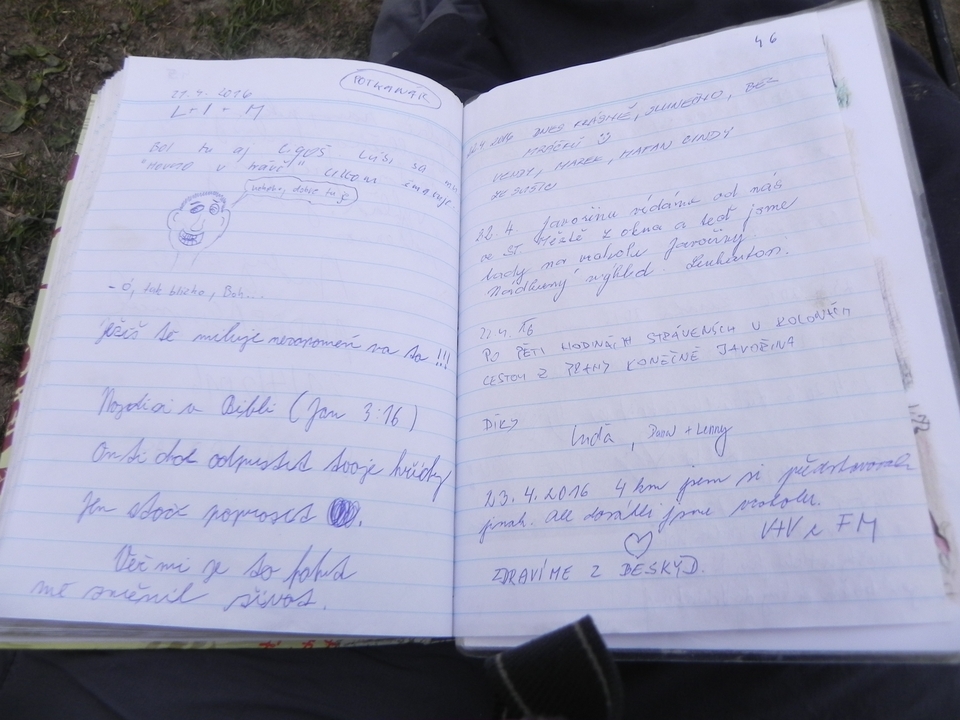 21.4.2016
L+I+M
Bol tu aj Ligoš Luši sa mu
"hovno v tráve"
vohohoj dobre tu je
- Ó, tak blízko, Boh...
Ježiš tě miluje nezapomeň na to !!!
Najdi si v Bibli (Jan 3:16)
On ti chce odpustit tvoje hříchy
Jen stačí poprosit.
Věř mi je to fakt
mě změnil život.
46
22.4.2016 DNES KRÁSNĚ, SLUNEČNO, BEZ
MRÁČKŮ
MAREK, CINDY
22.4. Javořinu vídáme od nás
ve St. Městě z okna a teď jsme
tady na vrcholu Javořiny
Nádherný výhled.
22.4.16
PO PĚTI HODINÁCH STRÁVENÝCH V KOLONÁCH
CESTOU Z PRAHY KONEČNĚ JAVOŘINA
DÍKY
Luďa, + Lenny
23.4.2016 4 km jsem si představovala
jinak. Ale dorazili jsme vrcholu.
V+V z FM
ZDRAVÍME Z BESKYD.